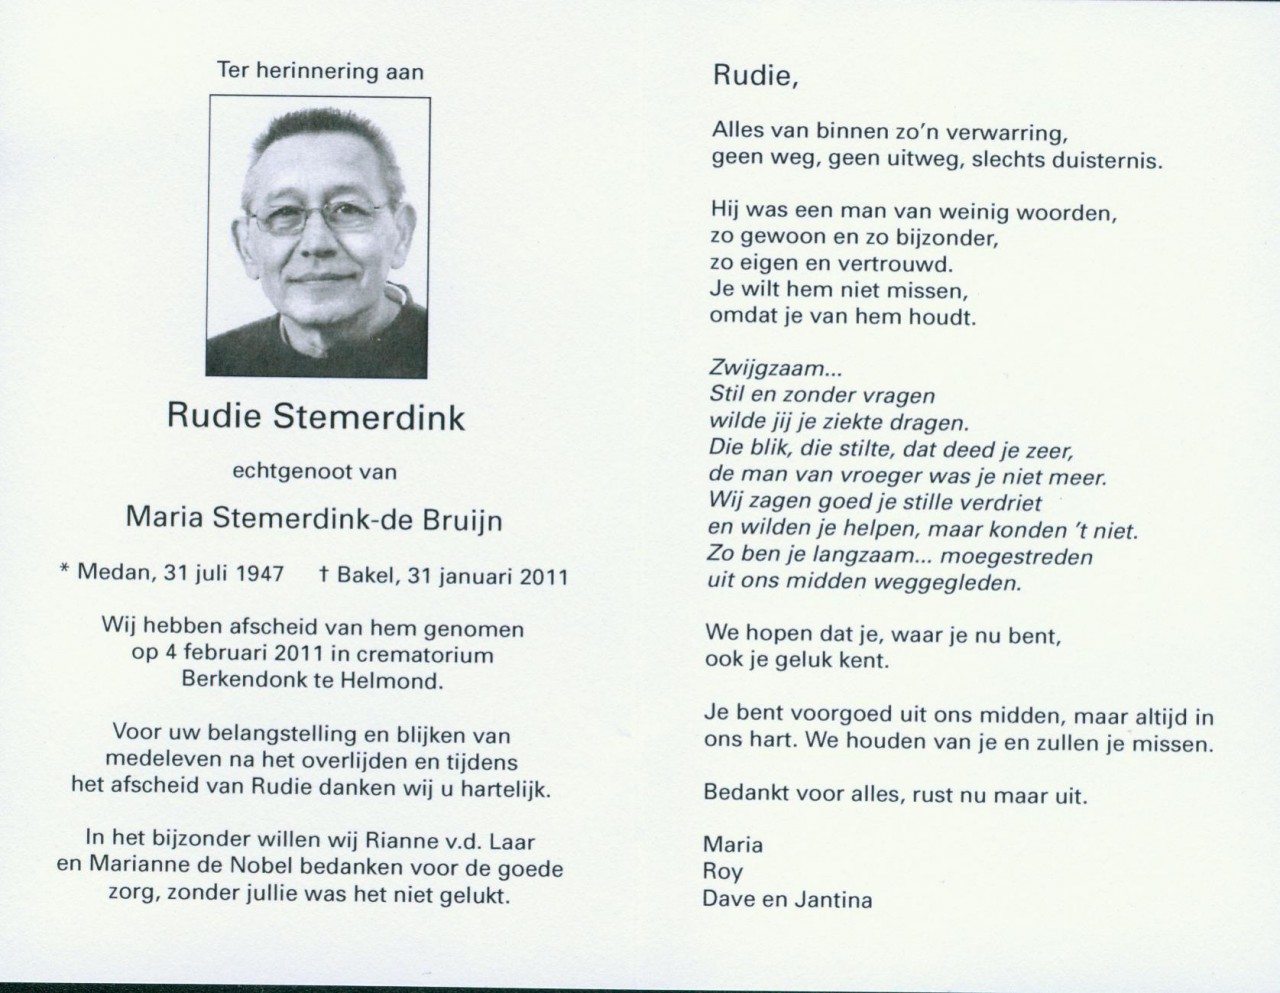 Ter herinnering aan
Rudie Stemerdink
echtgenoot van
Maria Stemerdink-de Bruijn
* Medan, 31 juli 1947 † Bakel, 31 januari 2011
Wij hebben afscheid van hem genomen
op 4 februari 2011 in crematorium
Berkendonk te Helmond.
Voor uw belangstelling en blijken van
medeleven na het overlijden en tijdens
het afscheid van Rudie danken wij u hartelijk.
In het bijzonder willen wij Rianne v.d. Laar
en Marianne de Nobel bedanken voor de goede
zorg, zonder jullie was het niet gelukt.
Rudie,
Alles van binnen zo'n verwarring,
geen weg, geen uitweg, slechts duisternis.
Hij was een man van weinig woorden,
zo gewoon en zo bijzonder,
zo eigen en vertrouwd.
Je wilt hem niet missen,
omdat je van hem houdt.
Zwijgzaam...
Stil en zonder vragen
wilde jij je ziekte dragen.
Die blik, die stilte, dat deed je zeer,
de man van vroeger was je niet meer.
Wij zagen goed je stille verdriet
en wilden je helpen, maar konden 't niet.
Zo ben je langzaam... moegestreden
uit ons midden weggegleden.
We hopen dat je, waar je nu bent,
ook je geluk kent.
Je bent voorgoed uit ons midden, maar altijd in
ons hart. We houden van je en zullen je missen.
Bedankt voor alles, rust nu maar uit.
Maria
Roy
Dave en Jantina